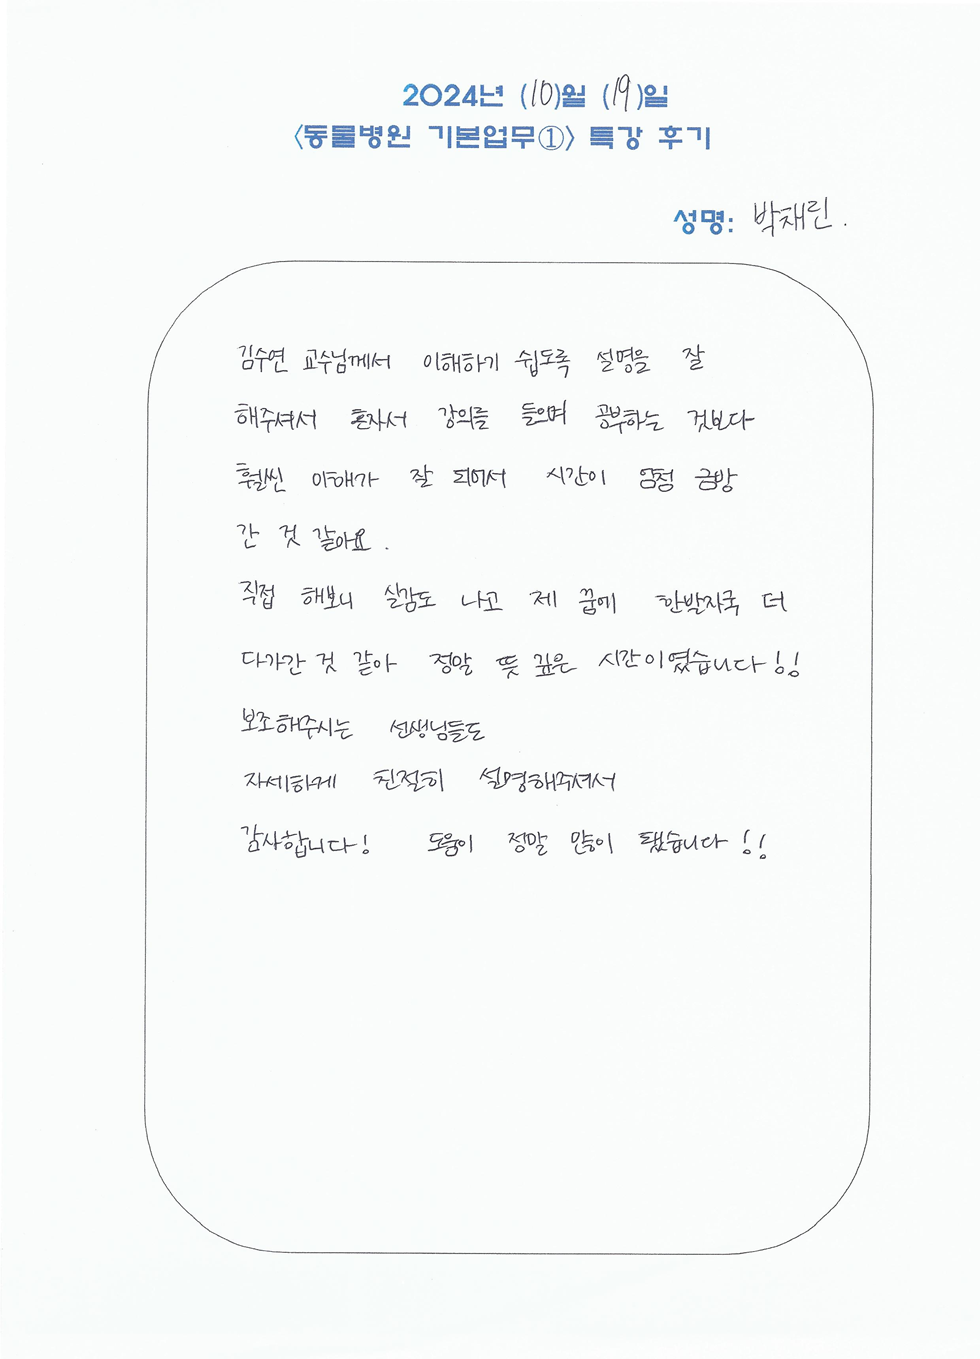 2024년 (10)월 (19)일
<동물병원 기본업무①> 특강 후기
성명: 박채린.
김수연 교수님께서 이해하기 쉽도록 설명을 잘
해주셔서 혼자서 강의를 들으며 공부하는 것보다
훨씬 이해가 잘 되어서 시간이 엄청 금방
간 것 같아요.
직접 해보니 실감도 나고 제 꿈에 한발자국 더
다가간 것 같아 정말 뜻 깊은 시간이였습니다!!
보조해주시는 선생님들도
자세하게 친절히 설명해주셔서
감사합니다! 도움이 정말 많이 됐습니다!!